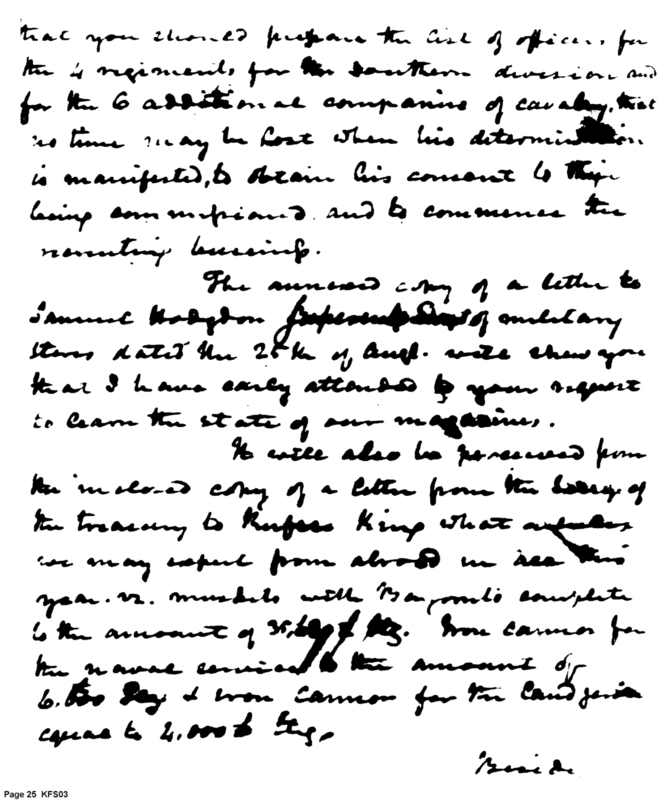 that you should prepare the list of officers for
the 4 regiments for the Southern division and
for the 6 additional companies of cavalry, that
no time may be lost when his determination
is manifested, to obtain his consent to their
being commissioned and to commence the
recruiting business.
The annexed copy of a letter to
Samuel Hodgdon Superintendent of military
stores dated the 25th of Augt. will shew you
that I have early attended to your request
to learn the state of our magazines.
It will also be perceived from
the inclosed copy of a letter from the Secry of
the treasury to Rufus King what articles
we may expect from abroad in all this
year. vz. muskets with Bayonets complete
to the amount of Stg. Iron cannon for
the naval service to the amount of
Stg & Iron cannon for the land service
equal to 4,000 £ Stg.
Beside
Page 25 KFS03